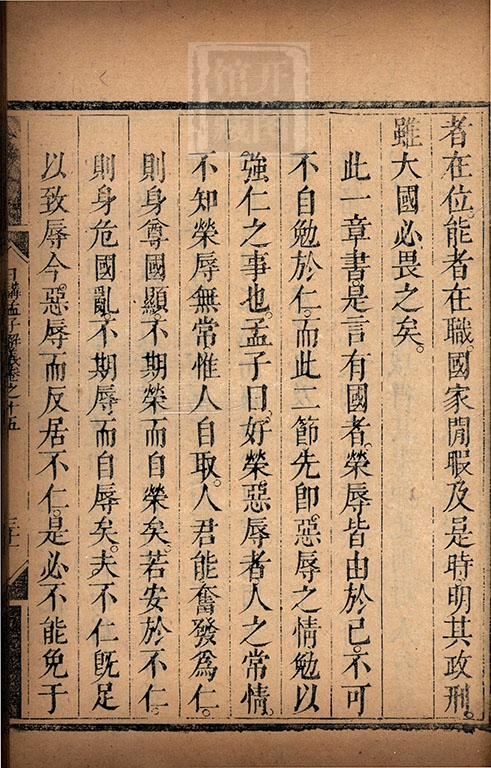 者在位。能者在職。國家閒暇。及是時。明其政刑。
雖大國必畏之矣。
此一章書。是言有國者。榮辱皆由於己。不可
不自勉於仁。而此二節先即惡辱之情。勉以
強仁之事也。孟子曰。好榮惡辱者。人之常情。
不知榮辱無常。惟人自取。人君能奮發爲仁。
則身尊國顯。不期榮而自榮矣。若安於不仁。
則身危國亂。不期辱而自辱矣。夫不仁旣足
以致辱。今惡辱而反居不仁。是必不能免于
日講孟子解義卷之十五 三十一